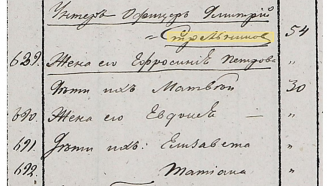 Унтеръ Офицеръ Дмитрій
= Стрельниковъ 54
629. Жена его Ефросинья Петрова "
Дѣти ихъ Матвѣй 30
620. Жена его Евдокея — "
621. Дѣти ихъ: Елизавета "
622. Татіана "